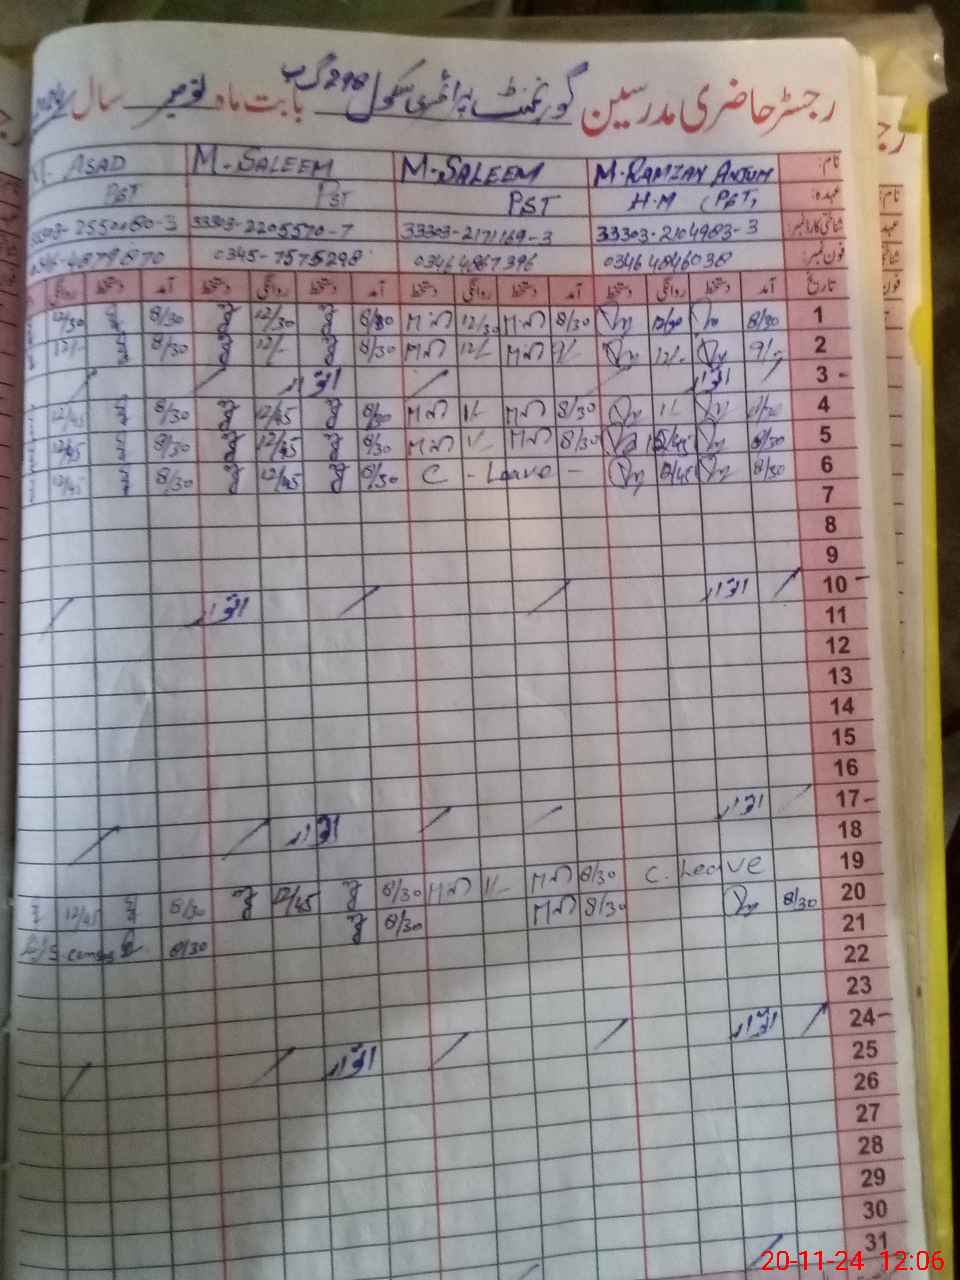 رجسٹر حاضری مدرسین گورنمنٹ پرائمری سکول 298 گ ب بابت ماہ نومبر سال 2024
نام: M. RAMZAN ANJUM M. SALEEM M. SALEEM M. ASAD
عہدہ: H.M (PST) PST PST PST
شناختی کارڈ نمبر: 33303-2104983-3 33303-2171169-3 33303-2205570-7
فون نمبر: 03464846038 03464867396 0345-7575298
تاریخ آمد دستخط روانگی دستخط آمد دستخط روانگی دستخط آمد دستخط روانگی دستخط آمد دستخط روانگی
1 8/30 12/30 8/30 12/30 8/30 12/30 8/30 12/30
2 9/- 12/- 9/- 12/- 8/30 12/- 8/30 12/-
3 اتوار اتوار
4 8/30 1/- 8/30 1/- 8/30 12/45 8/30 12/45
5 8/30 12/45 8/30 1/- 8/30 12/45 8/30 12/45
6 8/30 12/45 C - Leave - 8/30 12/45 8/30 12/45
7
8
9
10 اتوار اتوار
11
12
13
14
15
16
17 اتوار اتوار
18
19 C. Leave 8/30 1/- 8/30 12/45 8/30 12/45
20 8/30 8/30 8/30 8/30
21
22
23
24 اتوار اتوار
25
26
27
28
29
30
31
20-11-24 12:06